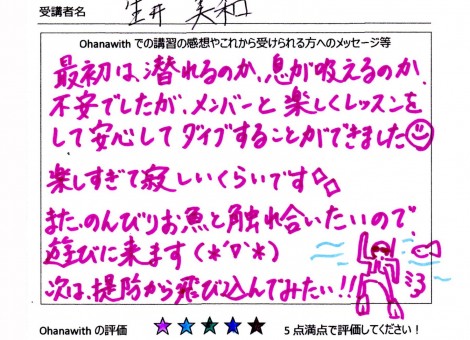 受講者名 生井 美和
Ohanawith での講習の感想やこれから受けられる方へのメッセージ等
最初は、潜れるのか、息が吸えるのか、
不安でしたが、メンバーと楽しくレッスンを
して安心してダイブすることができました
楽しすぎて寂しいくらいです
また、のんびりお魚と触れ合いたいので、
遊びに来ます(*'▽'*)
次は、堤防から飛び込んでみたい!!
Ohanawith の評価 ★★★★★ 5 点満点で評価してください!